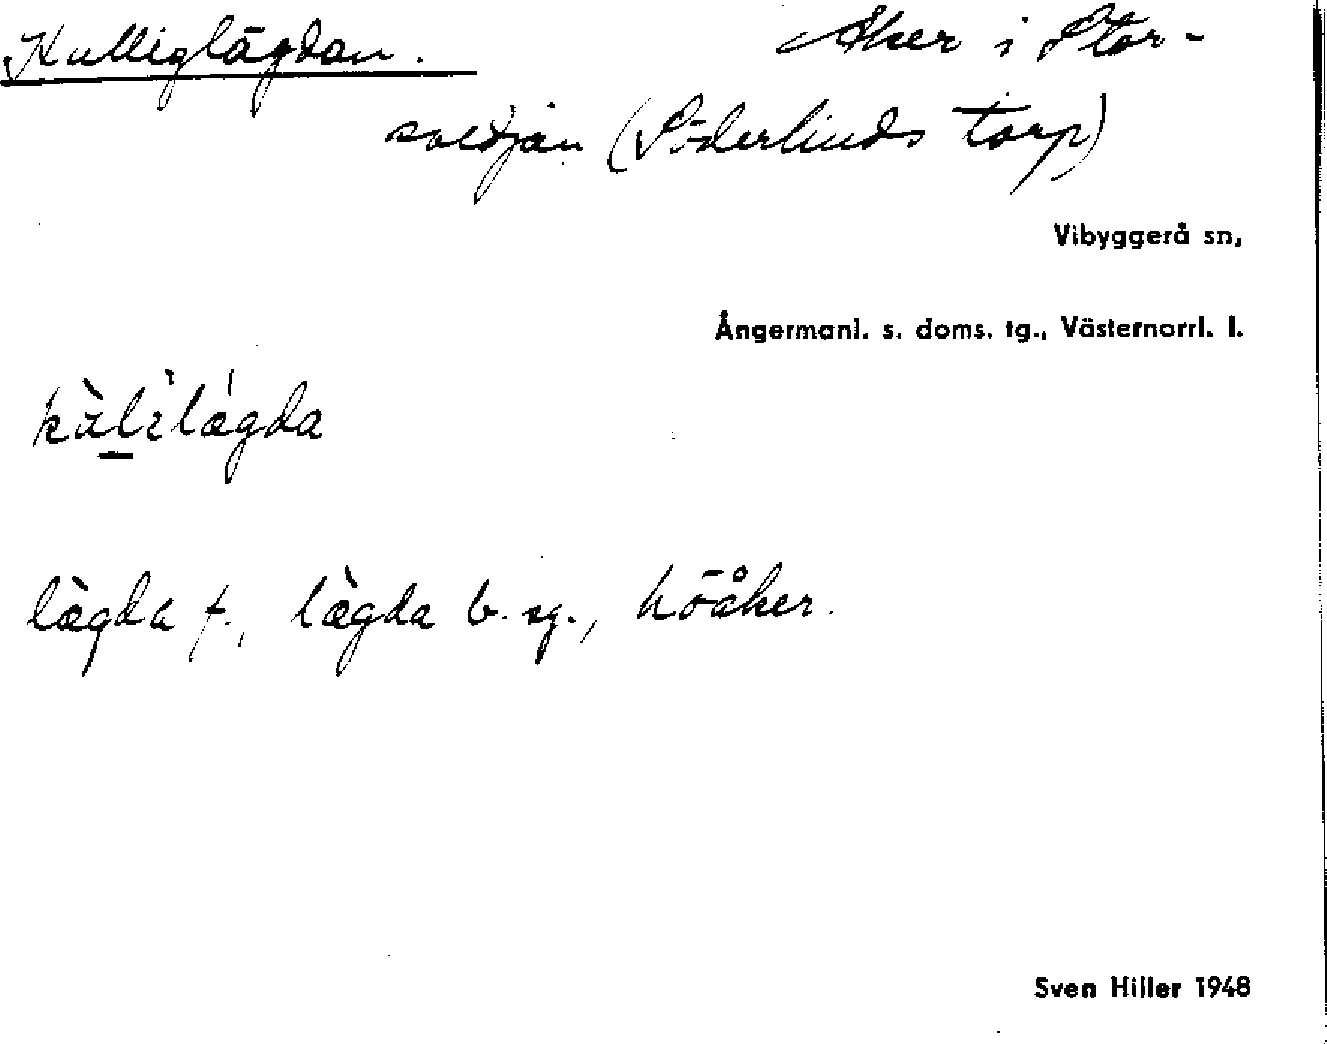 Kulliglägdan. Åker i Stor-
svedjan (Söderlinds torp)
Vibyggerå sn,
Ångermanl. s. doms. tg., Västernorrl. l.
kä̀lɩlǽgda
lǽgda f., lǽgda b. sg., höåker.
Sven Hiller 1948